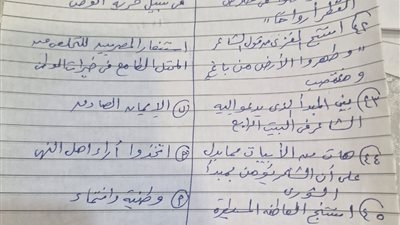 الفطر أرواحنا"
في سبيل حرية الوطن
٤٢ استنتج المغزى من قول الشاعر
"وطهروا الأرض من باغٍ
ومغتصب
استنفار المصريين للتخلص من
المحتل الطامع في خيرات الوطن
٤٣ بين المبدأ الذى يدعو إليه
الشاعر في البيت الرابع
الإيمان الصادق
٤٤ هات من الأبيات مما يدل
على أن الشاعر يؤمن بمبدأ
الشورى
اتخذوا آراء أهل النهى
٤٥ استنتج العاطفة المسيطرة
وطنية وانتماء